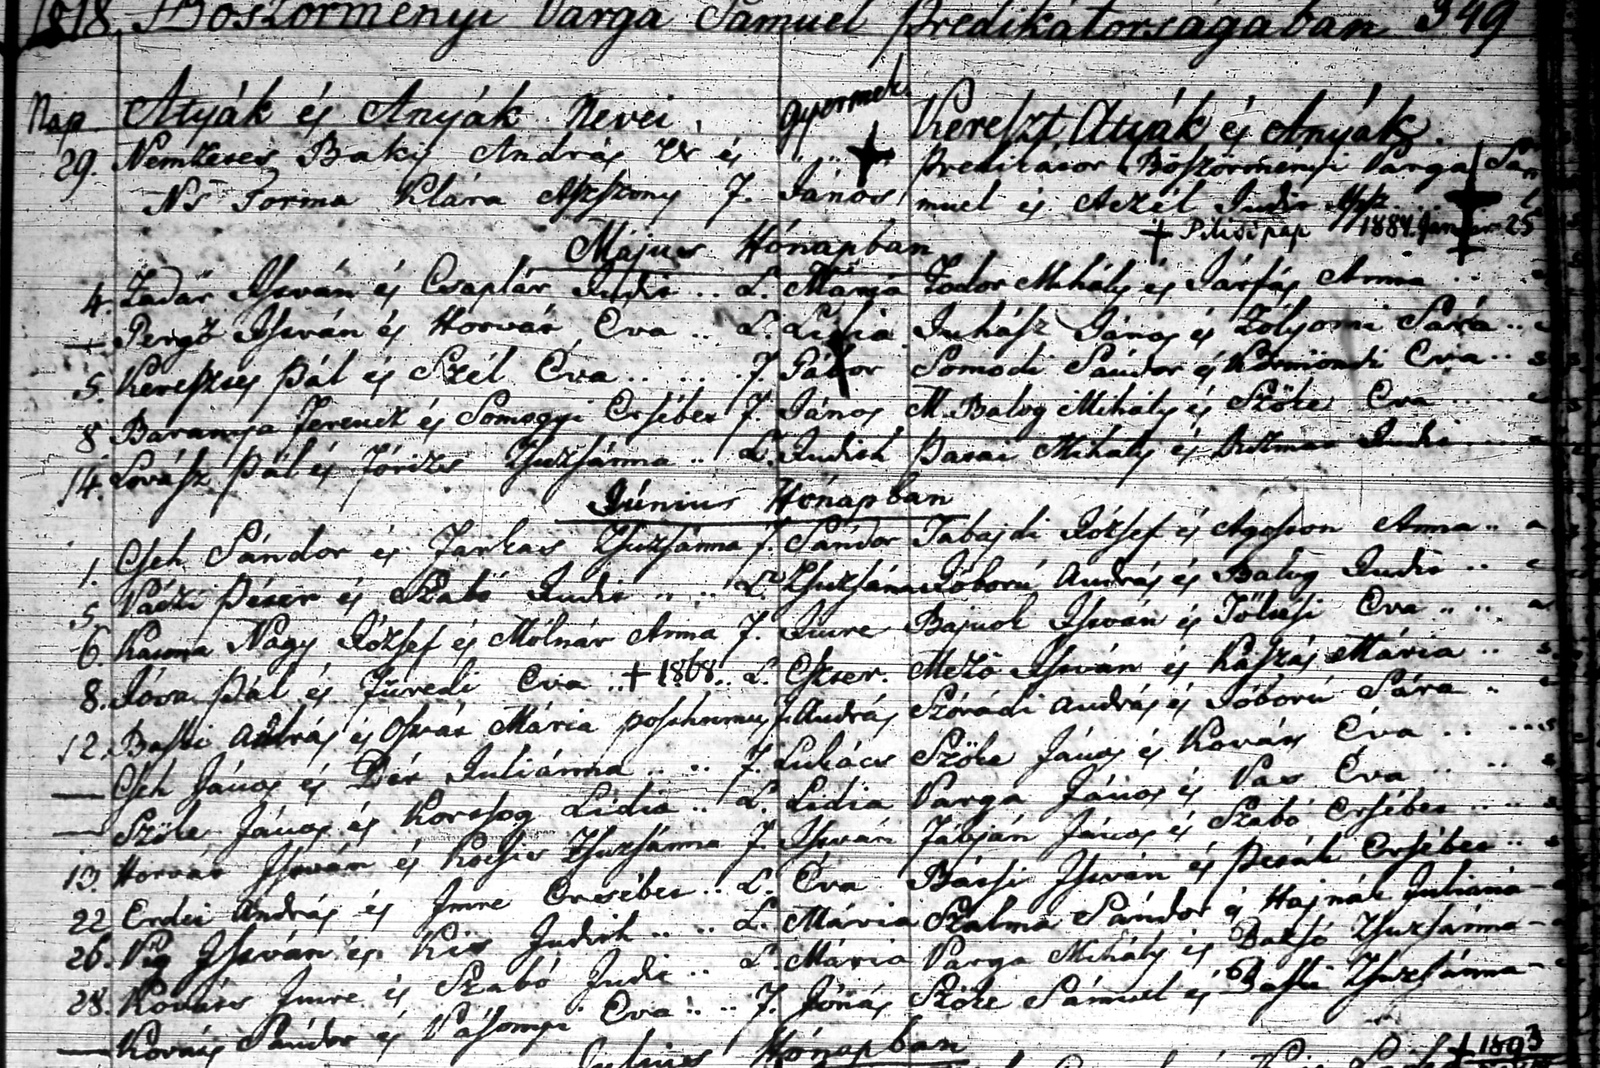 1818. Böszörményi Varga Sámuel Predikátorságában 349
Nap. Atyák és Anyák Nevei. Gyermek Kereszt Atyák és Anyák.
29. Nemzetes Baky András Ur és Predikátor Böszörményi Varga Sá
Ns Forma Klára Aszszony F. János muel és Aczél Judit
† Pilisi pap 1884. Januar 25
Május Hónapban
4. Zádár István és Csaplár Judit .. L. Mária Fodor Mihály és Járfás Anna
— Pergő István és Horvát Éva .. L. Lidia Juhász János és Zólyomi Sára ..
5. Keresztes Pál és Szél Éva .. F. Gábor Somodi Sándor és Körmöndi Éva ..
8 Baranya Ferencz és Somogyi Ersébet F. János M. Balog Mihály és Szőke Éva
14. Lovász Pál és Zsuzsánna .. L. Judith Patai Mihály és Judit
Június Hónapban
1. Cseh Sándor és Farkas Zsuzsánna F. Sándor Tabajdi József és Agoston Anna ..
5. Váczi Péter és Szabó Judit .. .. L. Zsuzsána Jóború András és Balog Judit ..
6. Katona Nagy József és Molnár Anna F. Imre Bajnok István és Tölcsi Éva .. ..
8. Jóva Pál és Füredi Éva .. † 1868 .. L. Eszter. Mező István és Kaszás Mária ..
12. Bassi András és Osvát Mária posthumus F. András Szórádi András és Jóború Sára ..
— Cseh János és Dér Juliánna .. .. F. Lukács Szőke János és Kovács Éva ..
— Szőke János és Korsog Lidia .. L. Lidia Varga János és Vas Éva ..
13. Horvát István és Kocsis Zsuzsánna F. István Fábján János és Szabó Ersébet
22 Erdei András és Imre Ersébet .. L. Éva Bácsi István és Pesák Ersébet ..
26. Víg István és Kis Judith .. .. L. Mária Szalma Sándor és Hajnál Juliána
28. Kovács Imre és Szabó Judit .. L. Mária Varga Mihály és Baksó Zsuzsánna
— Kornis Sándor és Vásonyi Éva .. .. F. Jónás Szőke Sámuel és Bassi Zsuzsánna
Július Hónapban
† 1893